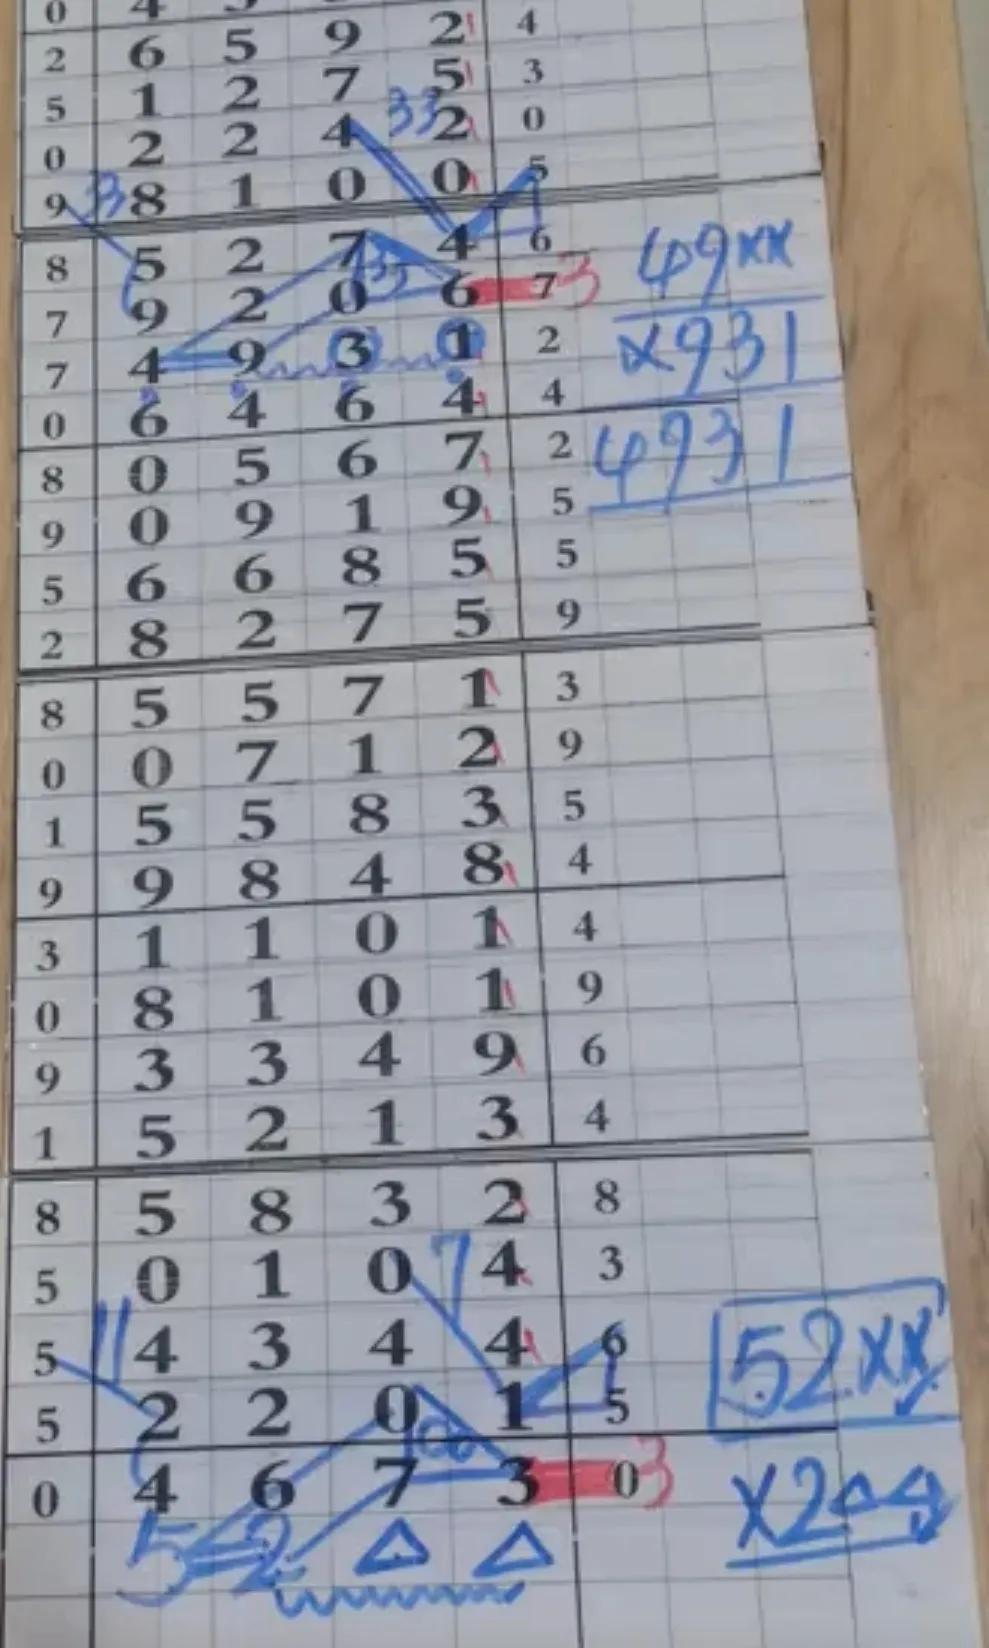 0 4
2 6 5 9 2 4
5 1 2 7 5 3
33
0 2 2 4 2 0
3
9 8 1 0 0 5
8 5 2 7 4 6
49xx
33
7 9 2 0 6 7 3
x931
7 4 9 3 1 2
0 6 4 6 4 4
4931
8 0 5 6 7 2
9 0 9 1 9 5
5 6 6 8 5 5
2 8 2 7 5 9
8 5 5 7 1 3
0 0 7 1 2 9
1 5 5 8 3 5
9 9 8 4 8 4
3 1 1 0 1 4
0 8 1 0 1 9
9 3 3 4 9 6
1 5 2 1 3 4
8 5 8 3 2 8
7
5 0 1 0 4 3
11
5 4 3 4 4 6
52xx
5 2 2 0 1 5
0 4 6 7 3 0 3
x2△△
5 2 △ △